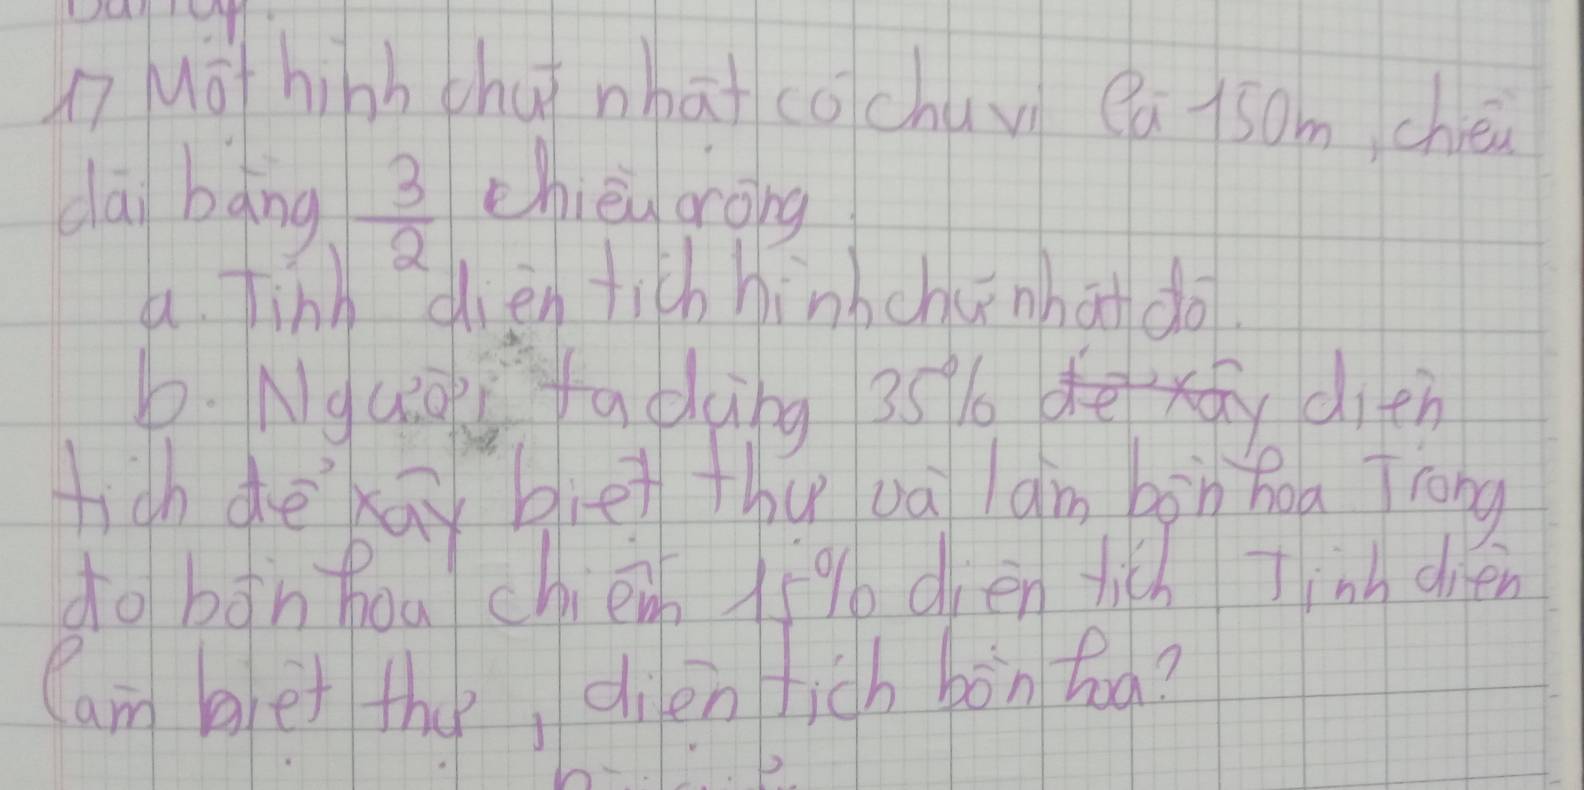 17 Một hình chữ nhật có chu vi là 150m, chiều
dài bằng 3/2 chiều rộng
a. Tính diện tích hình chữ nhật đó.
b. Người ta dùng 35% để xây diện
tích để xây biệt thự và làm bồn hoa Trong
đó bồn hoa chiếm 15% diện tích Tính diện
làm biệt thự, diện tích bồn hoa?